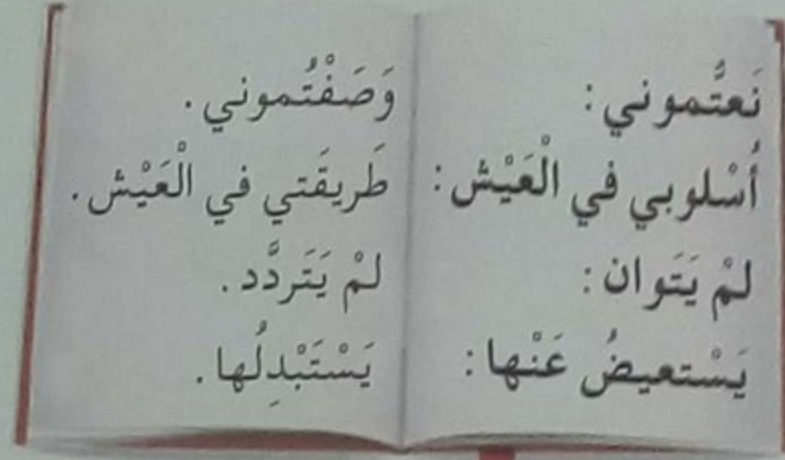 نَعتُّموني : وَصَفْتُموني .
أُسْلوبي في الْعَيْش : طَريقَتي في الْعَيْش .
لمْ يَتَوان : لمْ يَتَردَّد .
يَسْتعيضُ عَنْها : يَسْتَبْدِلُها .